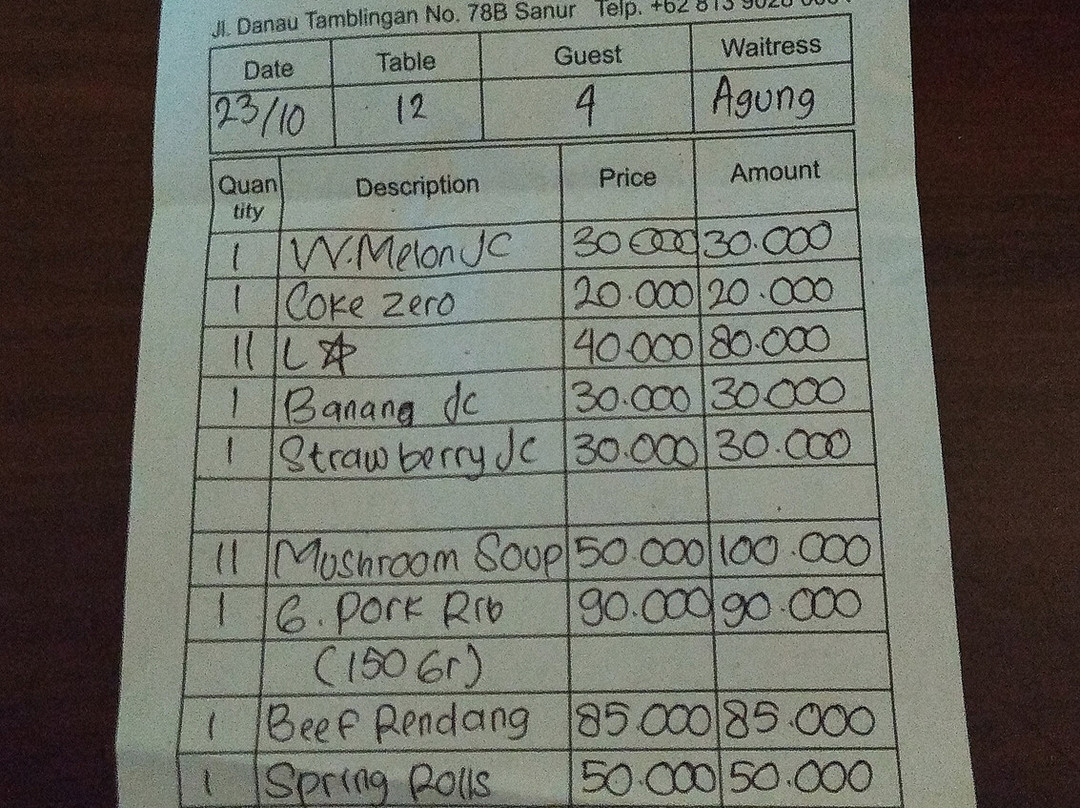 Jl. Danau Tamblingan No. 78B Sanur Telp. +62 813 9026
Date Table Guest Waitress
23/10 12 4 Agung
Quan tity Description Price Amount
1 W.Melon JC 30.000 30.000
1 Coke zero 20.000 20.000
11 L ☆ 40.000 80.000
1 Banana Jc 30.000 30.000
1 Strawberry Jc 30.000 30.000
11 Mushroom Soup 50.000 100.000
1 G. Pork Rib 90.000 90.000
(150 Gr)
1 Beef Rendang 85.000 85.000
1 Spring Rolls 50.000 50.000